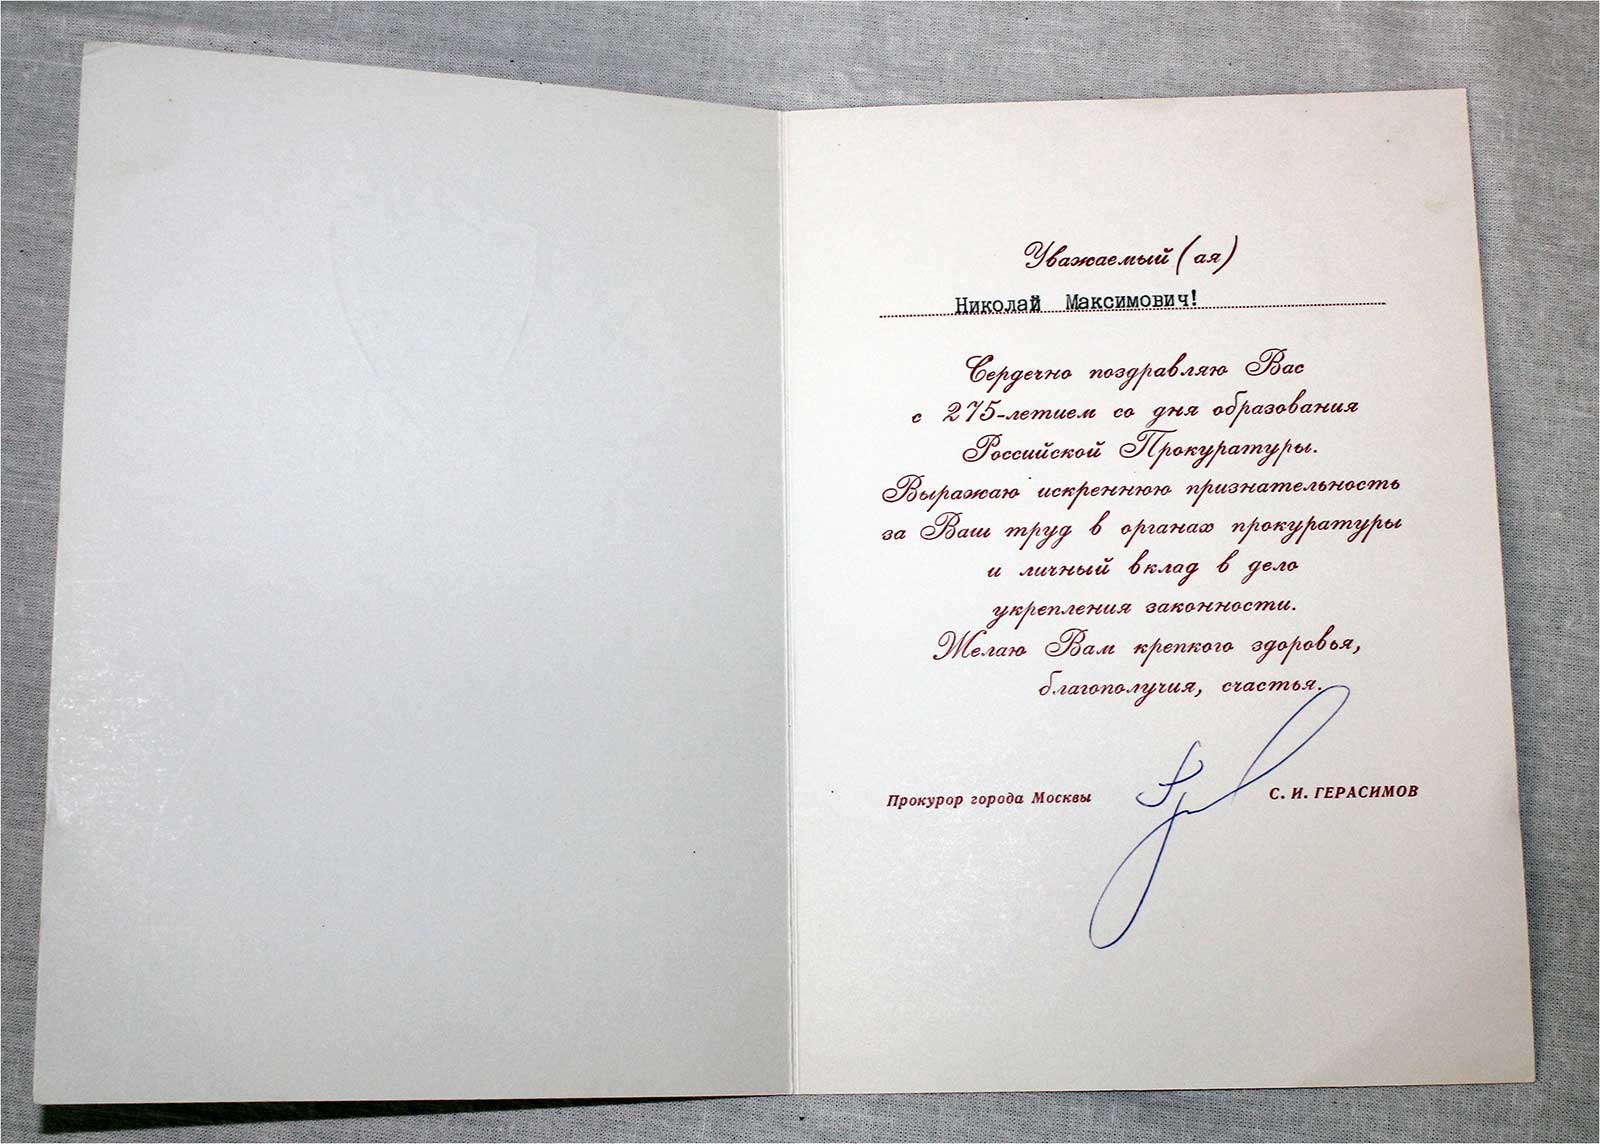 Уважаемый (ая)
Николай Максимович!
Сердечно поздравляю Вас
с 275-летием со дня образования
Российской Прокуратуры.
Выражаю искреннюю признательность
за Ваш труд в органах прокуратуры
и личный вклад в дело
укрепления законности.
Желаю Вам крепкого здоровья,
благополучия, счастья.
Прокурор города Москвы С. И. ГЕРАСИМОВ